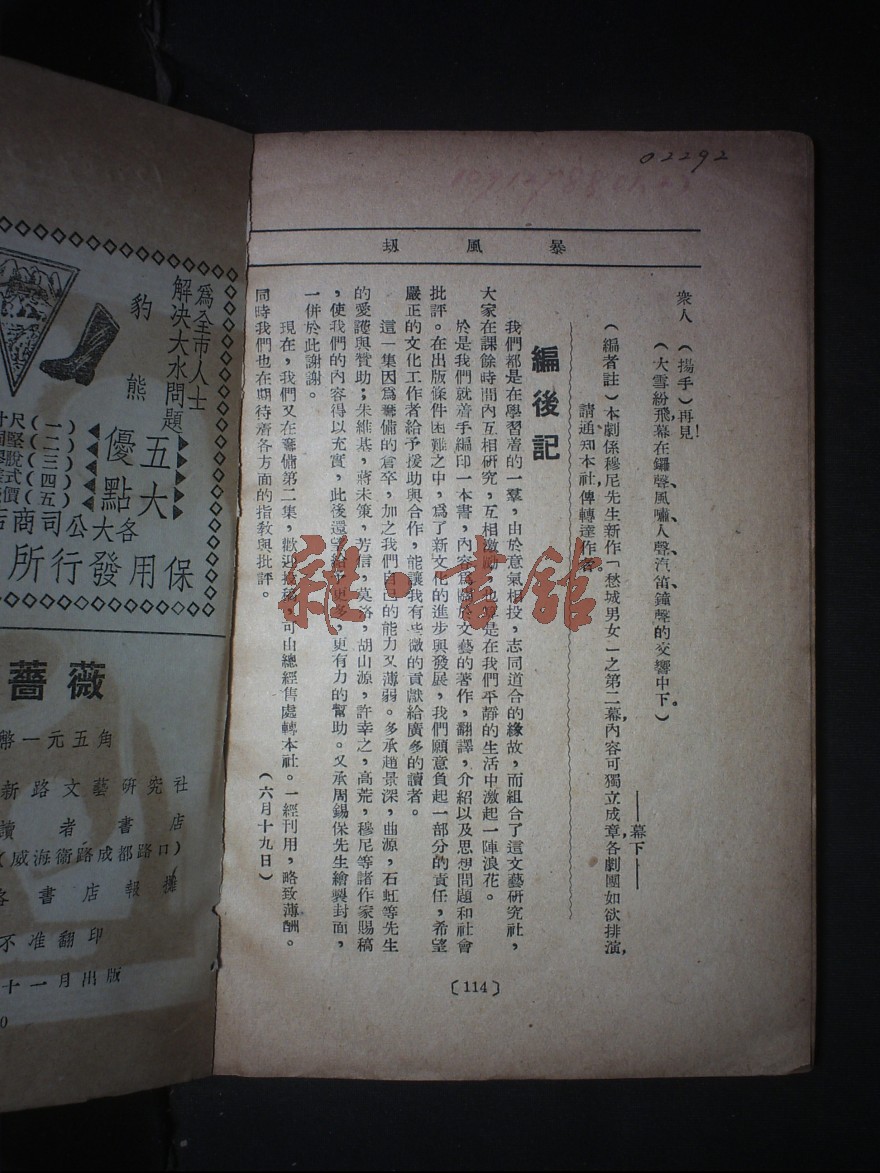 02292
暴風劫
衆人　（揚手）再見！
（大雪紛飛幕在鑼聲、風嘯、人聲、汽笛、鐘聲的交響中下。）
——幕下——
（編者註）本劇係穆尼先生新作「愁城男女」之第二幕，內容可獨立成章，各劇團如欲排演，
請通知本社，俾轉達作者。
編後記
我們都是在學習着的一羣，由於意氣相投，志同道合的緣故，而組合了這文藝研究社，
大家在課餘時間內互相研究，互相激勵，也算是在我們平靜的生活中激起一陣浪花。
於是我們就着手編印一本書，內容爲關於文藝的著作，翻譯，介紹以及思想問題和社會
批評。在出版條件困難之中，爲了新文化的進步與發展，我們願意負起一部分的責任，希望
嚴正的文化工作者給予援助與合作，能讓我有些微的貢獻給廣多的讀者。
這一集因爲籌備的倉卒，加之我們自己的能力又薄弱。多承趙景深，曲源，石虹等先生
的愛護與贊助；朱維基，蔣未策，芳信，莫洛，胡山源，許幸之，高荒，穆尼等諸作家賜稿
，使我們的內容得以充實，此後還望給予更多，更有力的幫助。又承周錫保先生繪製封面，
一併於此謝謝。
現在，我們又在籌備第二集，歡迎投稿，可由總經售處轉本社。一經刊用，略致薄酬。
同時我們也在期待着各方面的指敎與批評。
（六月十九日）
〔114〕
爲全市人士
解决大水問題
豹熊
五大
優點
尺寸（一）
（二）
（三）
（四）
（五）
各大公司商店
保用發行所
薔薇
幣一元五角
新路文藝研究社
讀者書店
（威海衞路成都路口）
各書店報攤
不准翻印
十一月出版
0
雜·書館